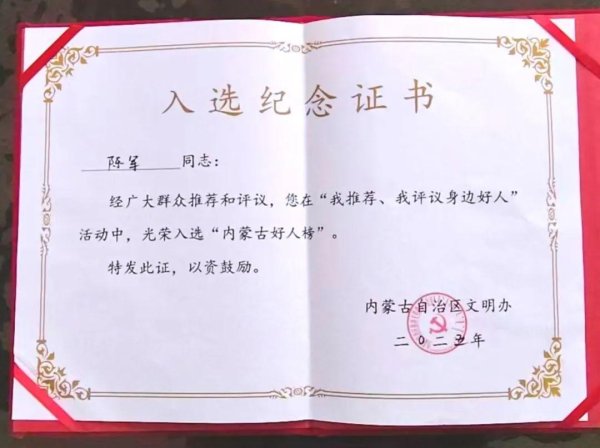 入选纪念证书
陈军 同志：
经广大群众推荐和评议，您在“我推荐、我评议身边好人”
活动中，光荣入选“内蒙古好人榜”。
特发此证，以资鼓励。
内蒙古自治区文明办
二〇二五年